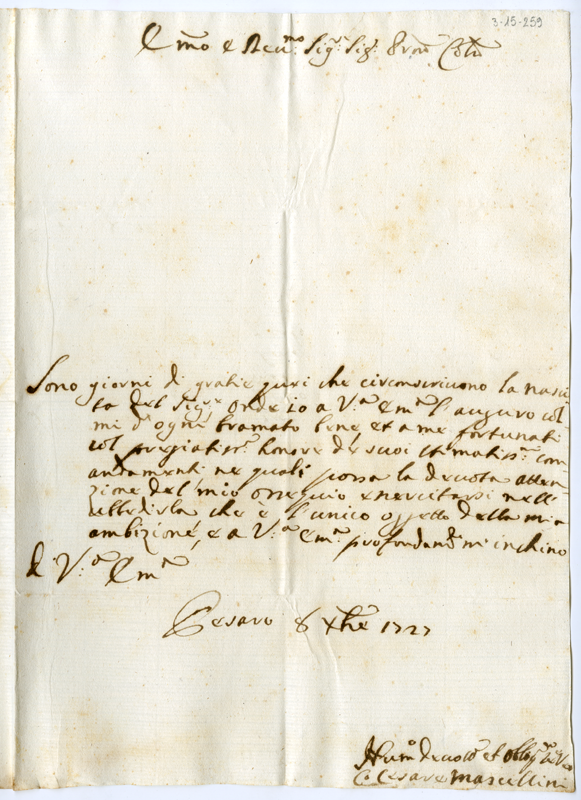 3-15-259
Emo e Reumo Sigr Sigr Prone Colmo
Sono giorni di gratie quei che circonscriuono la nasci
ta del Sigre onde io a V.a Em.a l'auguro col
mi d'ogni bramato bene, et a me fortunati
col pregiatissmo honore de suoi stimatissmi com
andamenti ne quali possa la deuota atten
zione del mio ossequio exercitarsi nell'
ubbedirla che è l'unico oggetto della mia
ambizione, e a V.a Em.a profondamte m'inchino
di V.a Em.a
Pesaro 8 Xbre 1727
Humo deuotmo et obblgmo
Cesare Marcellini